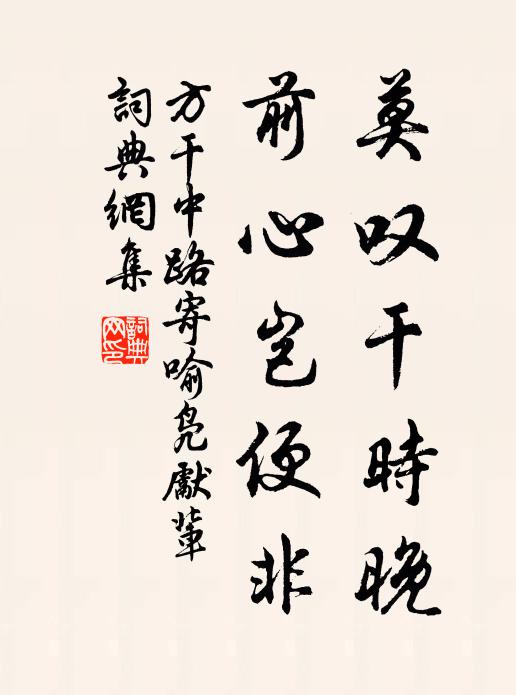 莫叹干時晚
前心豈便非
方干中路寄喻鳧獻輩
詞典網集
詞典網印